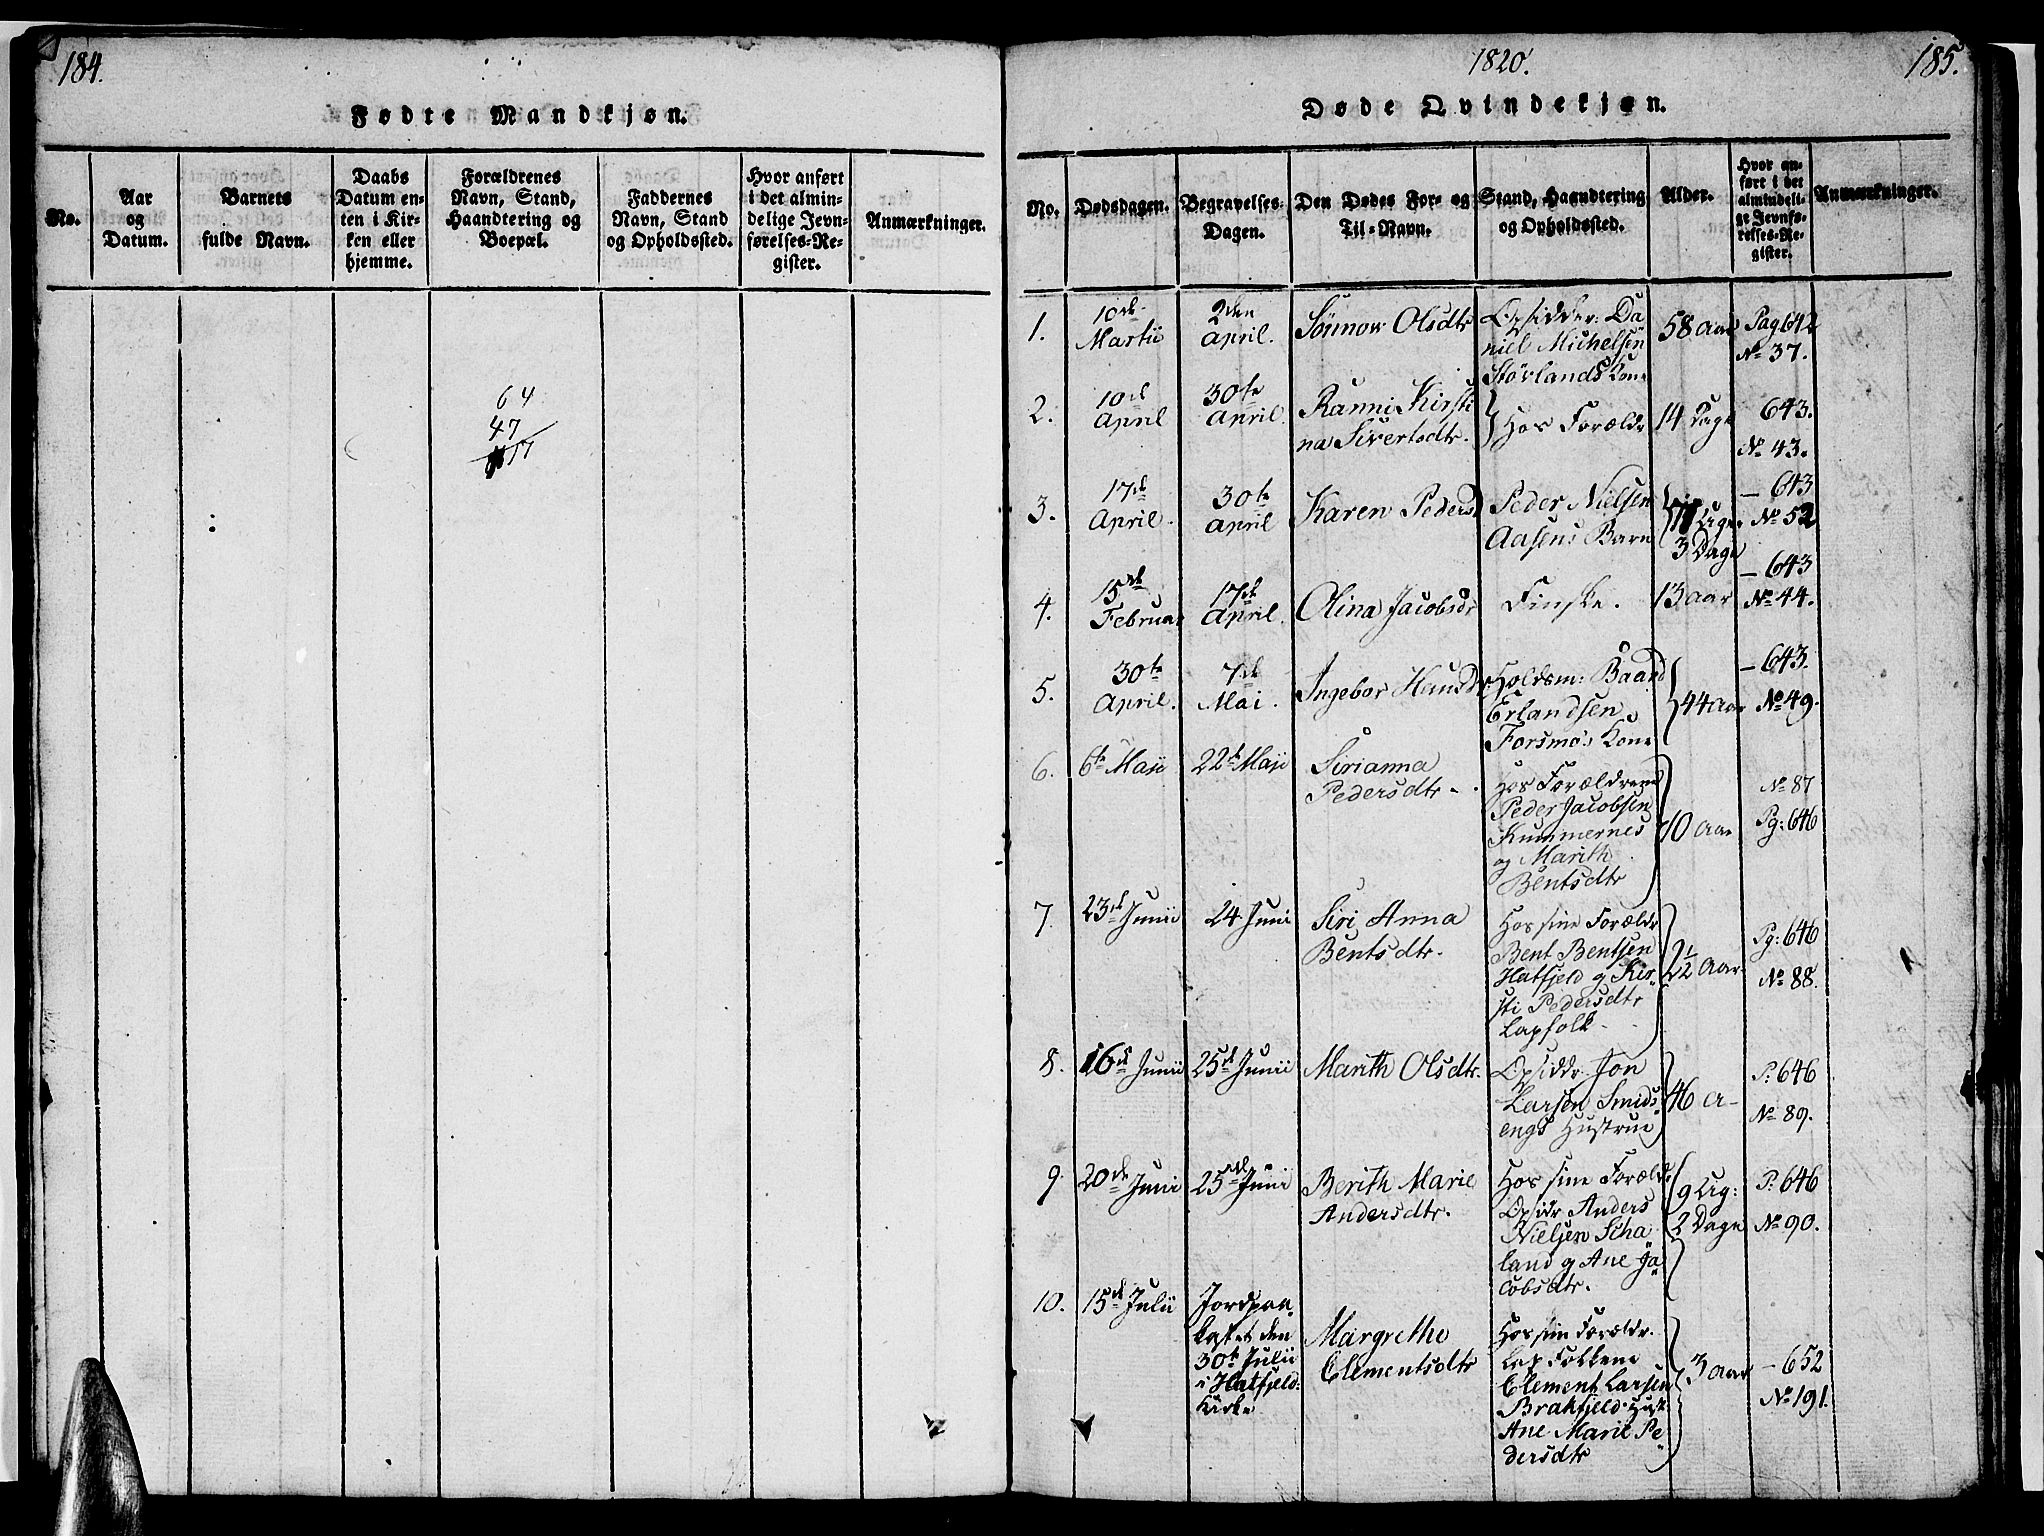 184.
Fødte Mandkjøn.
No.
Aar
og
Datum.
Barnets
fulde Navn.
Daabs
Datum en-
ten i Kir-
ken eller
hjemme.
Forældrenes
Navn, Stand,
Haandtering og
Boepæl.
Faddernes
Navn, Stand
og Opholdssted.
Hvor anført
i det almin-
delige Jevn-
førelses-Re-
gister.
Anmærkninger.
64
47
17
1820.
185.
Døde Qvindekjøn.
No.
Dødsdagen.
Begravelses-
Dagen.
Den Dødes For- og
Til-Navn.
Stand, Haandtering
og Opholdssted.
Alder.
Hvor an-
ført i det
almindeli-
ge Jevnfø-
relses-Re-
gister.
Anmærkninger.
1.
10de
Martii
2den
April.
Sönnow Olsdtr
Opsidder: Da
niel Michelsen
Störlands Kone
58 Aar
Pag 642
No 37.
2.
10de
April
30te
April.
Ranni Kirsti
na Sivertsdtr.
Hos Forældr
14 Dage
643.
No 43.
3.
17de
April.
30te
April
Karen Peders
Peder Nielsen
Aasens Barn
11 Ug
3 Dage
- 643
No 52
4.
15de
Februar
17de
April.
Olina Jacobsdr
Finske.
13 aar
- 643
No 44.
5.
30te
April.
7de
Mai.
Ingebor Hansd
Holdsm: Baard
Erlandsen
Forsmo's Kone
44 Aar
- 643.
No 49.
6.
6te Maji
22de Maji
Sirianna
Pedersdtr.
Hos Forældrene
Peder Jacobsen
Kummernes
og Marith
Bentsdtr
10 Aar
No 87
Pg: 646
7.
23de Junii
24 Juni
Siri Anna
Bentsdtr.
Hos sine Forældr
Bent Bentsen
Hatfjeld og Kir-
sti Pedersdtr
Lapfolk.
2 1/2 Aar
Pg: 646
No 88.
8.
16de Junii
25de Junii
Marith Olsdtr.
Opsiddr. Jon
Larsen Smids-
engs Hustrue
46 A-
P: 646
No 89.
9.
20de Junii
25de Junii
Berith Marie
Andersdtr.
Hos sine Foræld.
Opsidr Anders
Nielsen Scha
land og Ane Ja-
cobsdtr.
9 Ug:
2 Dage
P: 646
No 90.
10.
15de Julii
Jordpaa-
kastet den
30te Julii
i Hatfjeld:
Kirke
Margrethe
Clementsdtr
Hos sine Forældr.
Lap Folkene
Clement Larsen
Brakfjeld. Hust.
Ane Marie Pe-
dersdtr
3 Aar
- 652
No 191.